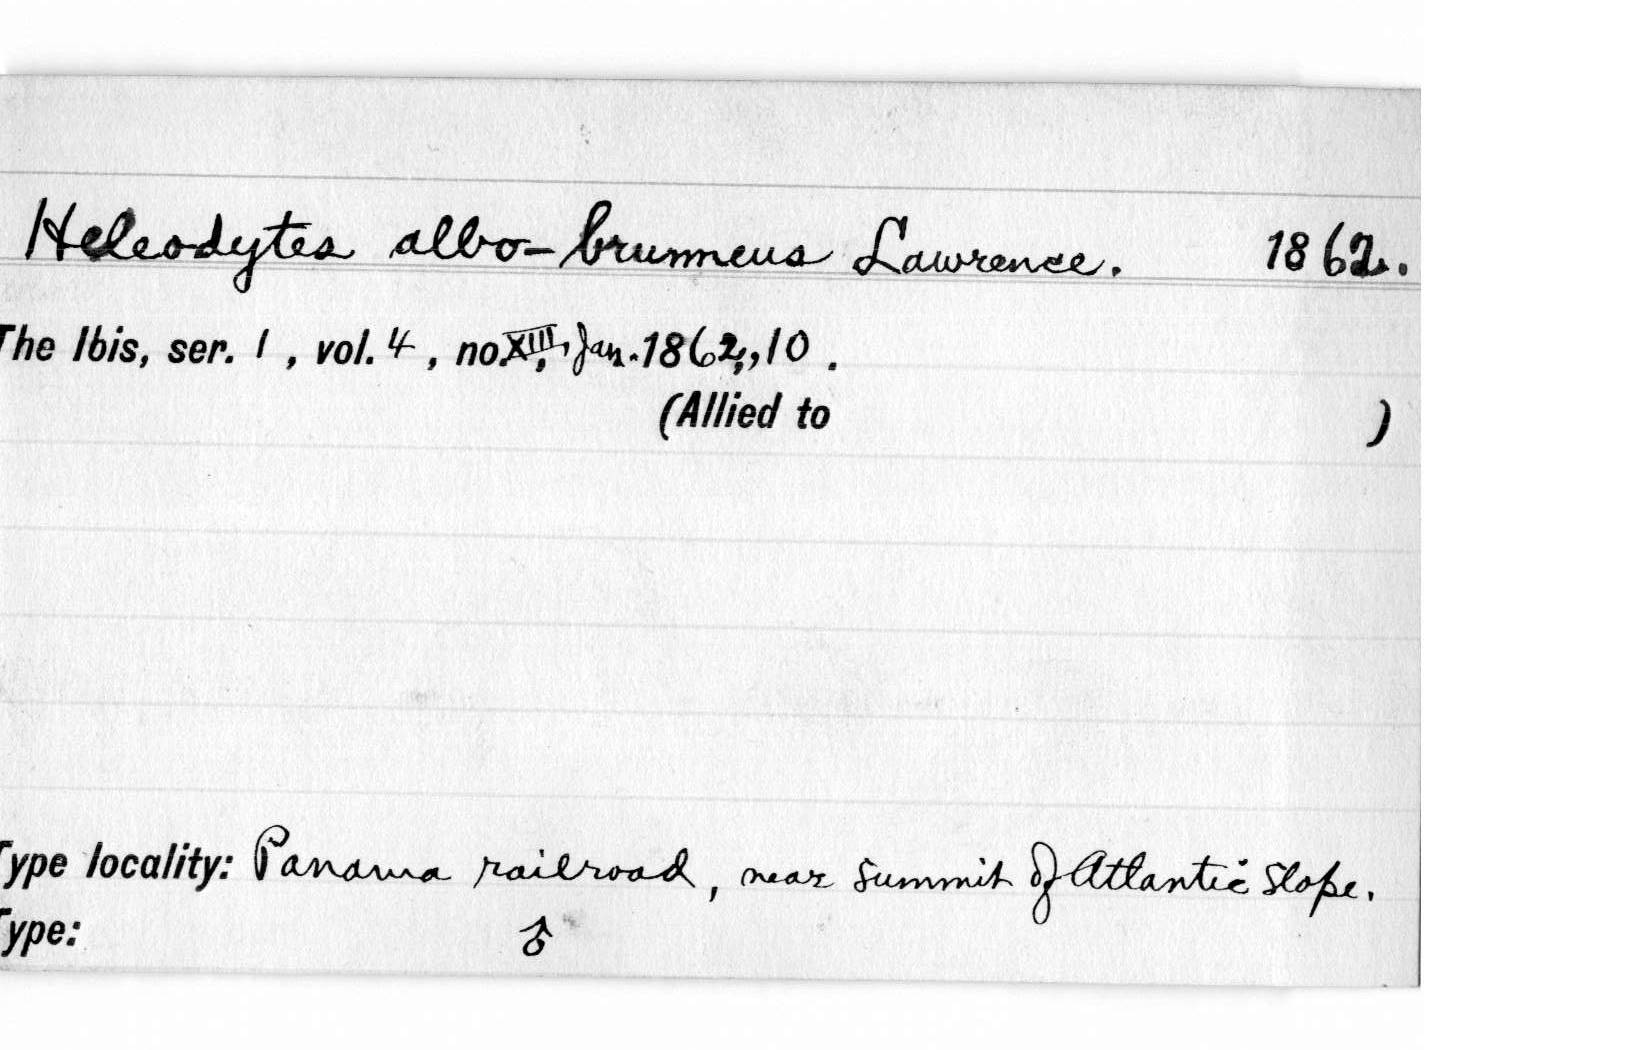 Heleodytes albo-brunneus Lawrence. 1862.
The Ibis, ser. 1, vol. 4, no. XIII, Jan. 1862, 10.
(Allied to )
Type locality: Panama railroad, near summit of Atlantic slope.
Type: ♂